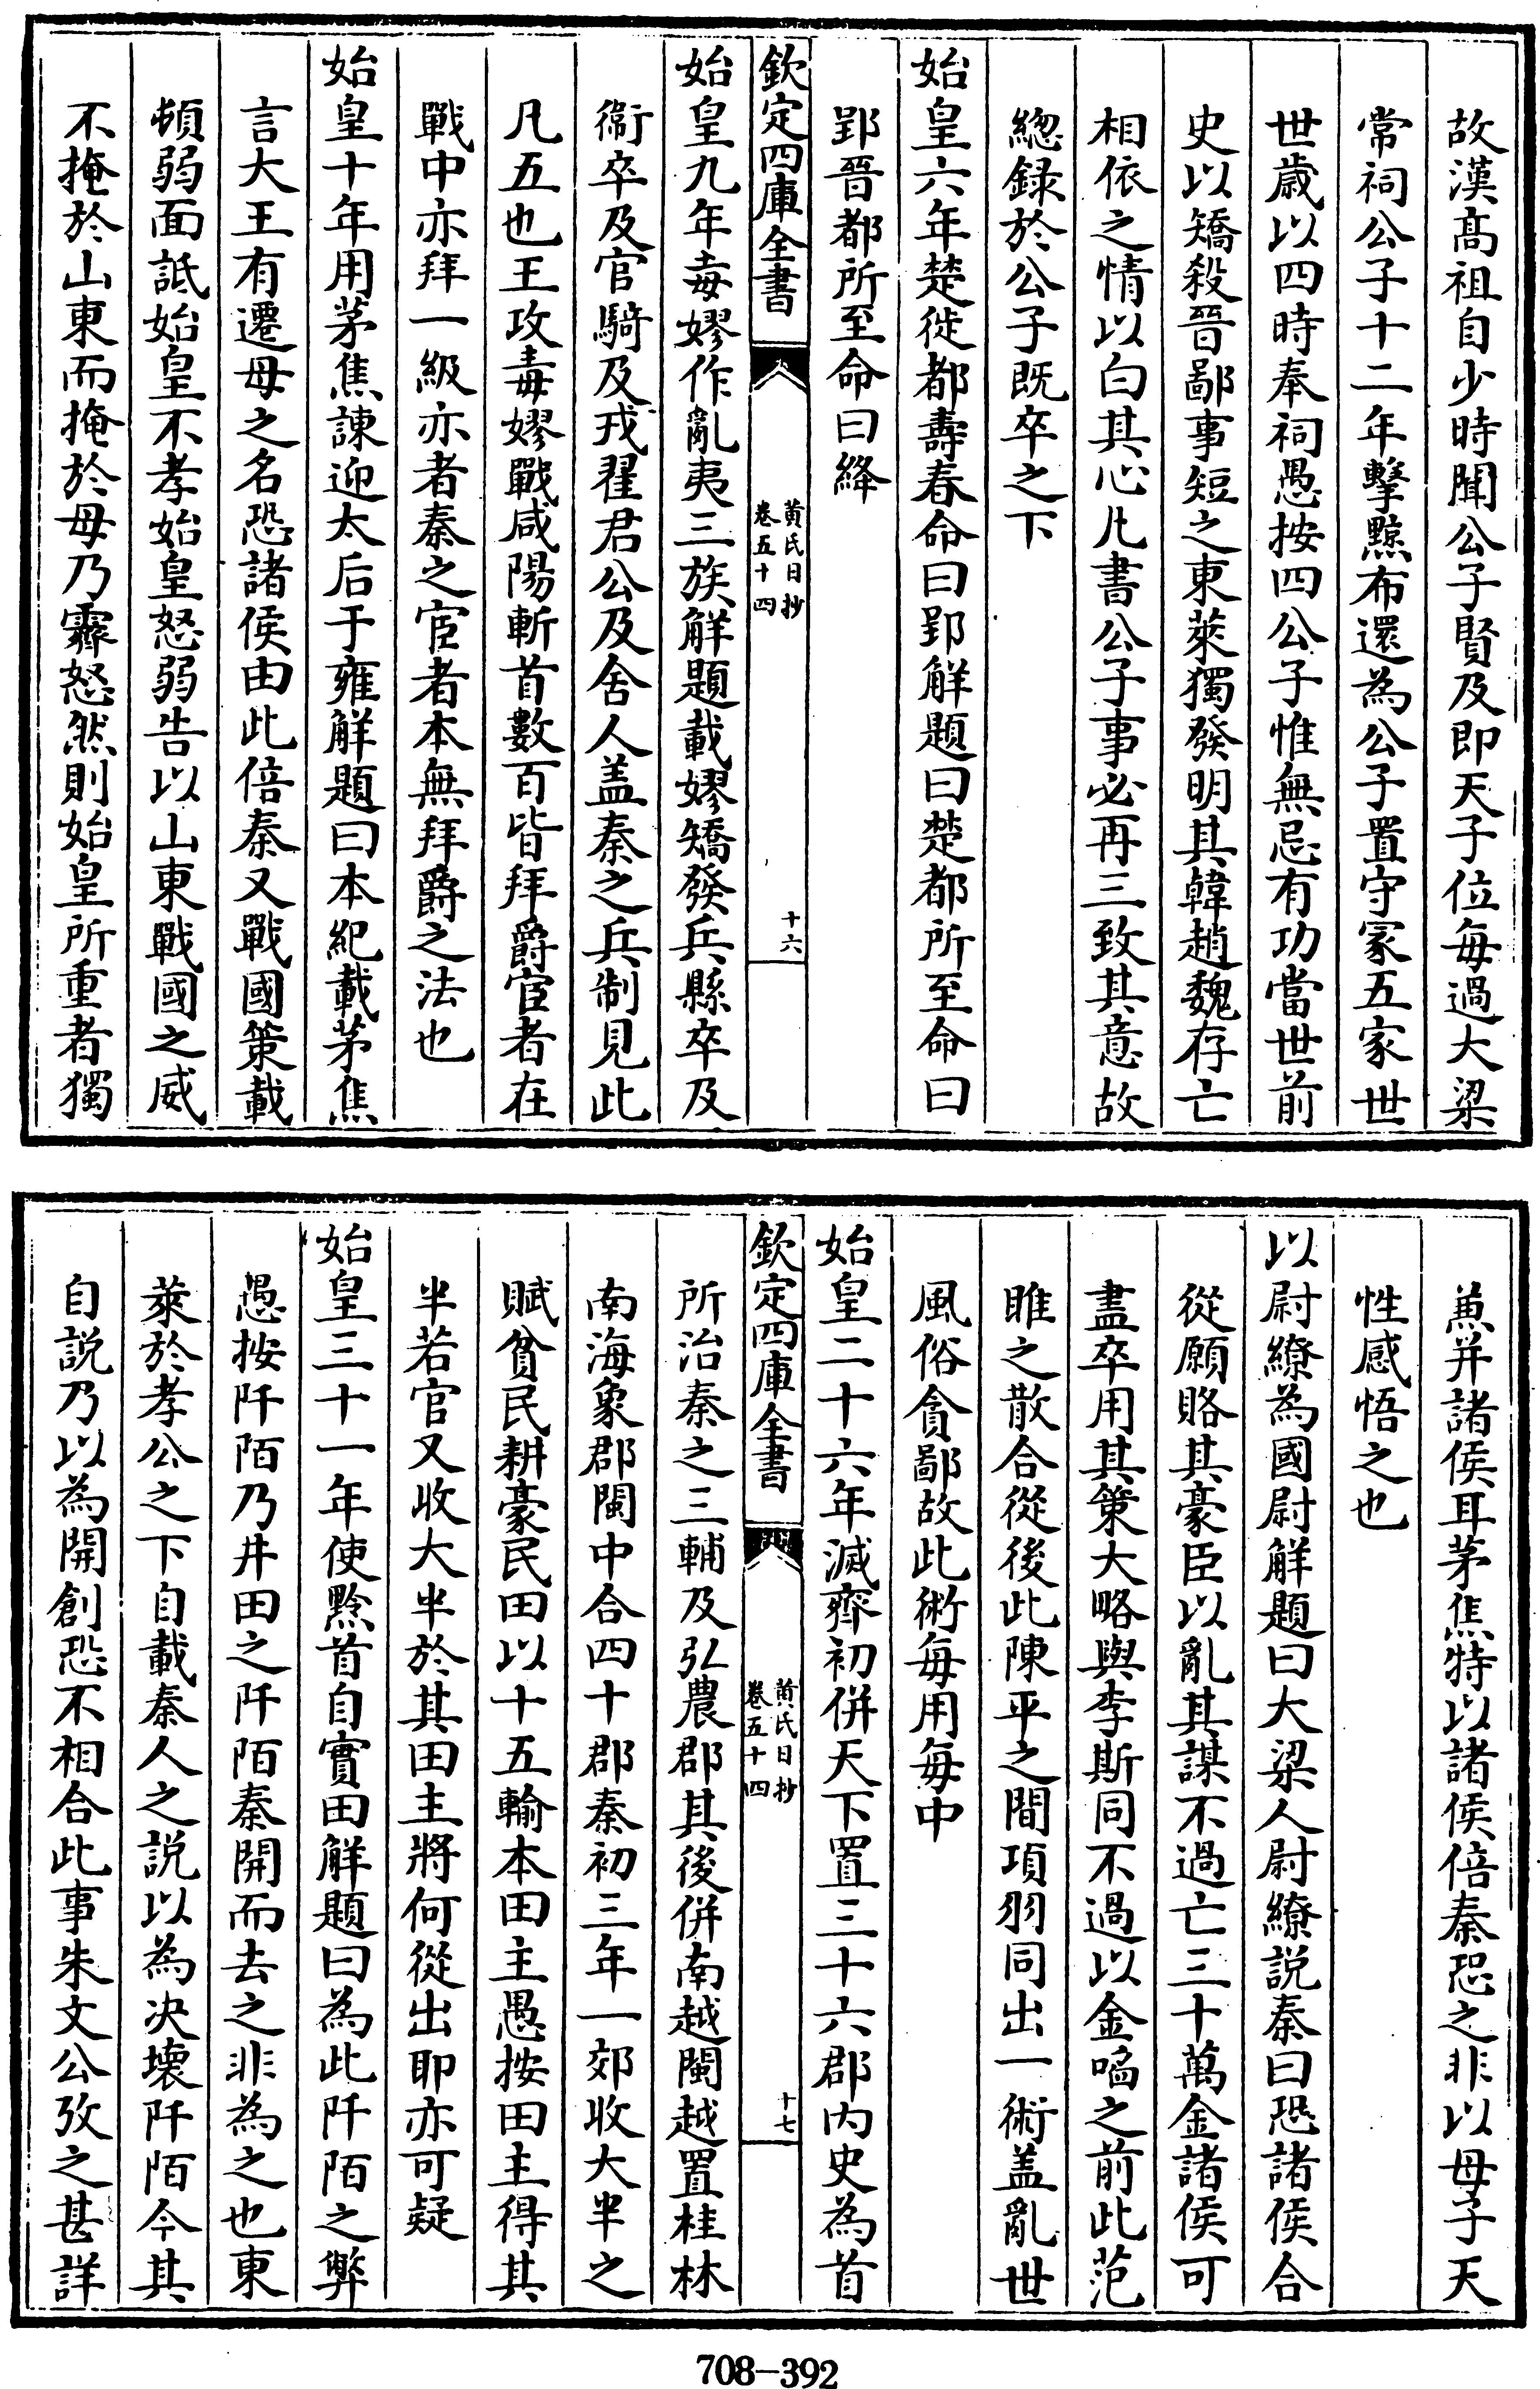 故漢髙祖自少時聞公子賢及即天子位每過大梁
常祠公子十二年擊黥布還為公子置守冡五家世
世歳以四時奉祠愚按四公子惟無忌有功當世前
史以矯殺晉鄙事短之東萊獨發明其韓趙魏存亡
相依之情以白其心凡書公子事必再三致其意故
總録於公子既卒之下
始皇六年楚徙都壽春命曰郢解題曰楚都所至命曰
郢晉都所至命曰絳
欽定四庫全書
黄氏日抄
卷五十四
十六
始皇九年毐嫪作亂夷三族解題載嫪矯發兵縣卒及
衞卒及官騎及戎翟君公及舍人盖秦之兵制見此
凡五也王攻毒嫪戰咸陽斬首數百皆拜爵宦者在
戰中亦拜一級亦者秦之宦者本無拜爵之法也
始皇十年用茅焦諫迎太后于雍解題曰本紀載茅焦
言大王有遷母之名恐諸侯由此倍秦又戰國策載
頓弱面詆始皇不孝始皇怒弱告以山東戰國之威
不掩於山東而掩於母乃霽怒然則始皇所重者獨
兼并諸侯耳茅焦特以諸侯倍秦恐之非以母子天
性感悟之也
以尉繚為國尉解題曰大梁人尉繚説秦曰恐諸侯合
從願賂其豪臣以亂其謀不過亡三十萬金諸侯可
盡卒用其策大略與李斯同不過以金㗖之前此范
睢之散合從後此陳平之間項羽同出一術盖亂世
風俗貪鄙故此術每用每中
始皇二十六年滅齊初併天下置三十六郡内史為首
欽定四庫全書
黄氏日抄
卷五十四
十七
所治秦之三輔及弘農郡其後併南越閩越置桂林
南海象郡閩中合四十郡秦初三年一郊收大半之
賦貧民耕豪民田以十五輸本田主愚按田主得其
半若官又收大半於其田主將何從出耶亦可疑
始皇三十一年使黔首自實田解題曰為此阡陌之弊
愚按阡陌乃井田之阡陌秦開而去之非為之也東
萊於孝公之下自載秦人之説以為决壊阡陌今其
自説乃以為開創恐不相合此事朱文公攷之甚詳
708-392